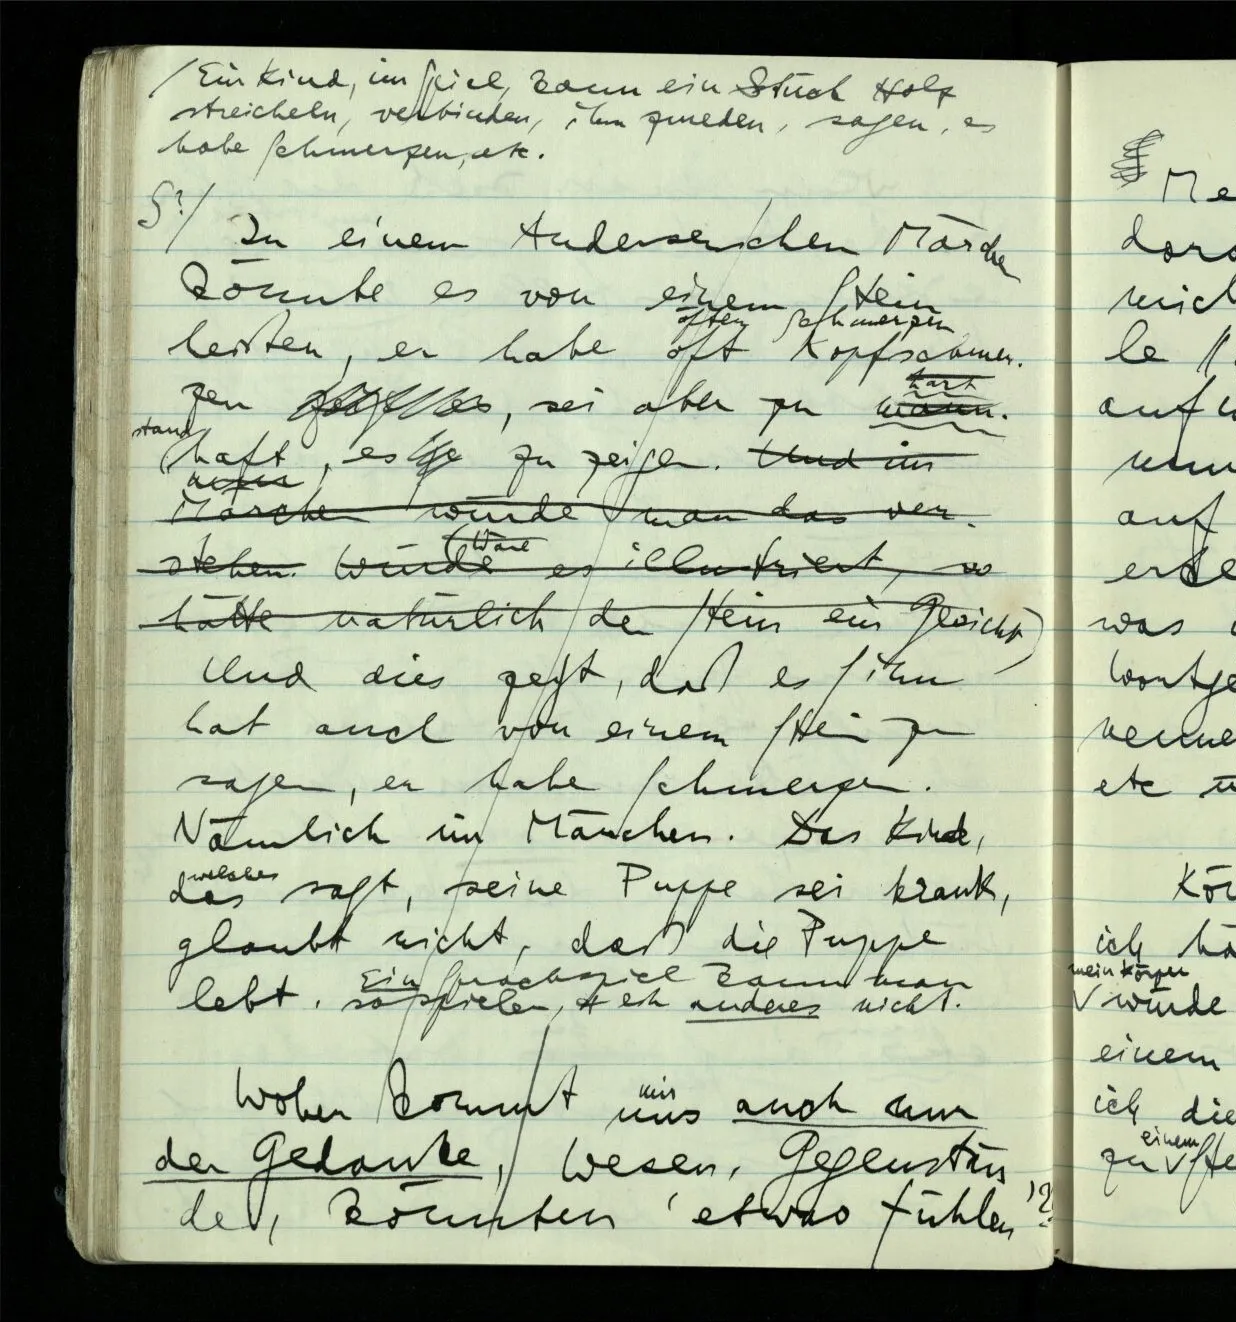 / Ein Kind, im Spiel, kann ein Stück Holz
streicheln, verbinden, ihm zureden, sagen, es
habe Schmerzen, etc.
§?/ In einem Andersenschen Märchen
könnte es von einem Stein
öfters Schmerzen
heißen, er habe oft Kopfschmer-
hart
zen, sei aber zu mann-
stand
haft, es zu zeigen. Und im
Märchen würde man das ver-
Wäre
stehen. Würde es illustriert, so
hätte natürlich der Stein ein Gesicht)
Und dies zeigt, daß es Sinn
hat auch von einem Stein zu
sagen, er habe Schmerzen.
Nämlich im Märchen. Das Kind,
welches
das sagt, seine Puppe sei krank,
glaubt nicht, daß die Puppe
Ein Sprachspiel kann man
lebt. so spielen, ein anderes nicht.
mir
Woher kommt uns auch nur
der Gedanke, Wesen, Gegenstän
de, könnten 'etwas fühlen'?
Me
wich
le
auf
auf
was
Wortge
etc
ich
mein Körper
würde
einem
ich die
einem
zu Ste